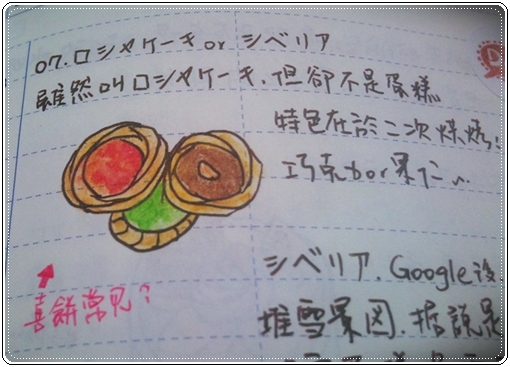 07.ロシヤケーキ or シベリア
雖然叫ロシヤケーキ.但卻不是蛋糕
特色在於二次烘烤!
巧克力or果仁~
喜餅常見?
シベリア.Google後
堆雪景図.據說是